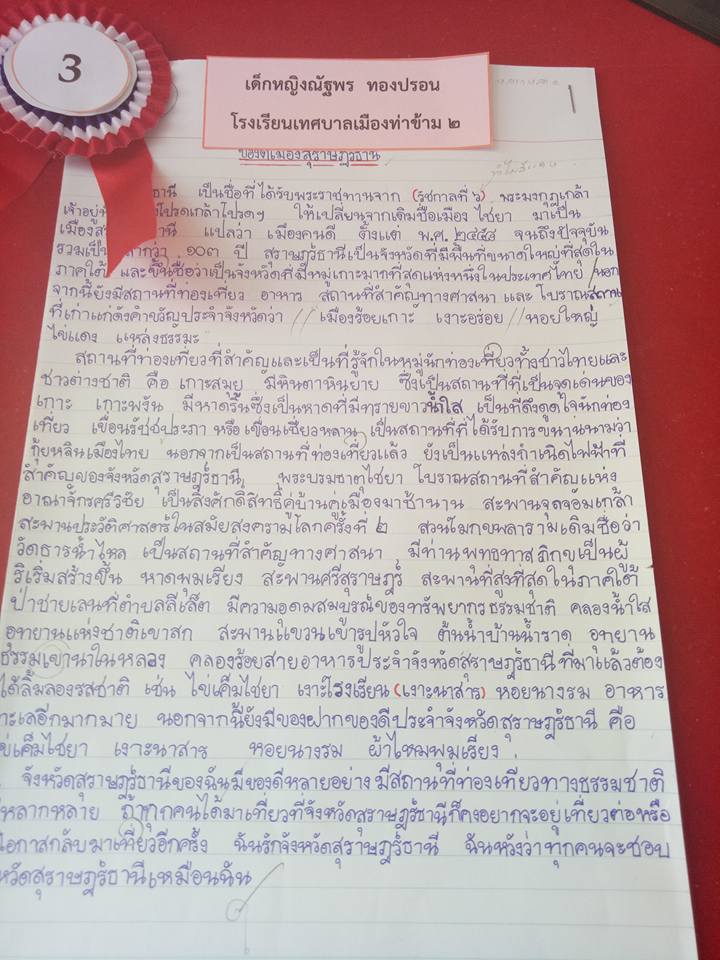 3
เด็กหญิงณัฐพร ทองปรอน
โรงเรียนเทศบาลเมืองท่าข้าม ๒
ของดีเมืองสุราษฎร์ธานี
ธานี เป็นชื่อที่ได้รับพระราชทานจาก (รัชกาลที่ ๖) พระมงกุฎเกล้า
เจ้าอยู่ โปรดเกล้าโปรดฯ ให้เปลี่ยนจากเดิมชื่อเมือง ไชยา มาเป็น
เมืองสุ ธานี แปลว่า เมืองคนดี ตั้งแต่ พ.ศ. ๒๔๕๘ จนถึงปัจจุบัน
รวมเป็น กว่า ๑๐๓ ปี สุราษฎร์ธานีเป็นจังหวัดที่มีพื้นที่ขนาดใหญ่ที่สุดใน
ภาคใต้ และขึ้นชื่อว่าเป็นจังหวัดที่มีหมู่เกาะมากที่สุดแห่งหนึ่งในประเทศไทย / นอก
จากนี้ยังมีสถานที่ท่องเที่ยว อาหาร สถานที่สำคัญทางศาสนา และ โบราณสถาน
ที่เก่าแก่ดังคำขวัญประจำจังหวัดว่า // เมืองร้อยเกาะ เงาะอร่อย // หอยใหญ่
ไข่แดง แหล่งธรรมะ
สถานที่ท่องเที่ยวที่สำคัญและเป็นที่รู้จักในหมู่นักท่องเที่ยวทั้งชาวไทยและ
ชาวต่างชาติ คือ เกาะสมุย มีหินตาหินยาย ซึ่งเป็นสถานที่ที่เป็นจุดเด่นของ
เกาะ เกาะพงัน มีหาดริ้นซึ่งเป็นหาดที่มีทรายขาวน้ำใส เป็นที่ดึงดูดใจนักท่อง
เที่ยว เขื่อนรัชชประภา หรือเขื่อนเชี่ยวหลาน เป็นสถานที่ที่ได้รับการขนานนามว่า
กุ้ยหลินเมืองไทย นอกจากเป็นสถานที่ท่องเที่ยวแล้ว ยังเป็นแหล่งกำเนิดไฟฟ้าที่
สำคัญของจังหวัดสุราษฎร์ธานี พระบรมธาตุไชยา โบราณสถานที่สำคัญแห่ง
อาณาจักรศรีวิชัย เป็นสิ่งศักดิ์สิทธิ์คู่บ้านคู่เมืองมาช้านาน สะพานจุลจอมเกล้า
สะพานประวัติศาสตร์ในสมัยสงครามโลกครั้งที่ ๒ สวนโมกขพลารามเดิมชื่อว่า
วัดธารน้ำไหล เป็นสถานที่สำคัญทางศาสนา มีท่านพุทธทาสภิกขุเป็นผู้
ริเริ่มสร้างขึ้น หาดพุมเรียง สะพานศรีสุราษฎร์ สะพานที่สูงที่สุดในภาคใต้
ป่าชายเลนที่ตำบลลีเล็ด มีความอุดมสมบูรณ์ของทรัพยากรธรรมชาติ คลองน้ำใส
อุทยานแห่งชาติเขาสก สะพานแขวนเขารูปหัวใจ ต้นน้ำบ้านน้ำราด อุทยาน
ธรรมเขานาในหลวง คลองร้อยสายอาหารประจำจังหวัดสุราษฎร์ธานีที่มาแล้วต้อง
ได้ลิ้มลองรสชาติ เช่น ไข่เค็มไชยา เงาะโรงเรียน (เงาะนาสาร) หอยนางรม อาหาร
ะเลอีกมากมาย นอกจากนี้ยังมีของฝากของดีประจำจังหวัดสุราษฎร์ธานี คือ
ข่เค็มไชยา เงาะนาสาร หอยนางรม ผ้าไหมพุมเรียง
จังหวัดสุราษฎร์ธานีของฉันมีของดีหลายอย่าง มีสถานที่ท่องเที่ยวทางธรรมชาติ
หลากหลาย ถ้าทุกคนได้มาเที่ยวที่จังหวัดสุราษฎร์ธานีก็คงอยากจะอยู่เที่ยวต่อหรือ
โอกาสกลับมาเที่ยวอีกครั้ง ฉันรักจังหวัดสุราษฎร์ธานี ฉันหวังว่าทุกคนจะชอบ
หวัดสุราษฎร์ธานีเหมือนฉัน